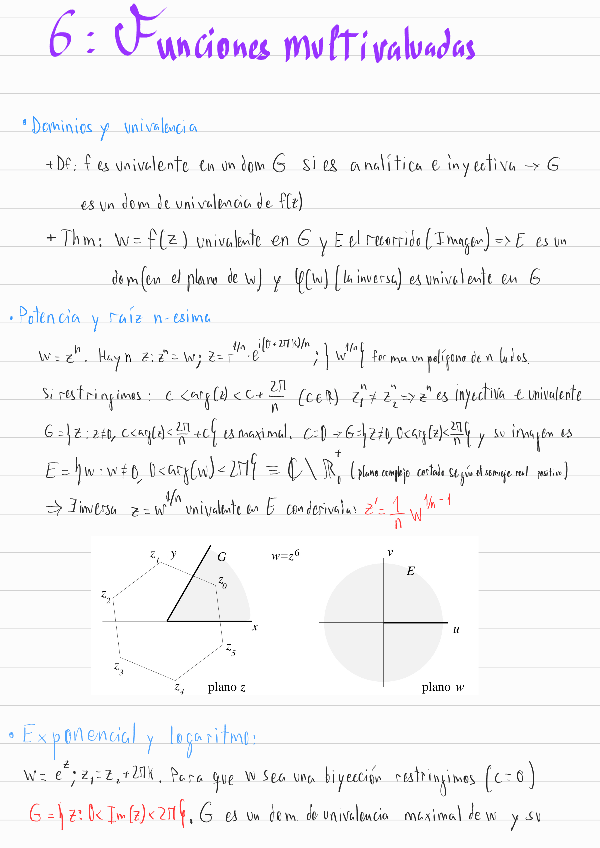 6: Funciones multivaluadas
• Dominios y univalencia
+ Df: f es univalente en un dom G si es analítica e inyectiva → G
es un dom de univalencia de f(z)
+ Thm: w = f(z) univalente en G y E el recorrido (Imagen) => E es un
dom (en el plano de w) y φ(w) (la inversa) es univalente en G
• Potencia y raíz n-esima
w = zⁿ. Hay n z: zⁿ = w; z = r^{1/n} · e^{i(θ+2πk)/n}; } w^{1/n} { forma un polígono de n lados.
Si restringimos: c < arg(z) < c + 2π/n (c∈ℝ) z₁ⁿ ≠ z₂ⁿ → zⁿ es inyectiva e univalente
G = {z: z≠0, c<arg(z)<2π/n + c} es maximal. c=0 → G={z≠0, 0<arg(z)<2π/n} y su imagen es
E = {w: w≠0, 0<arg(w)<2π} ≡ ℂ \ ℝ₀⁺ (plano complejo cortado según el semieje real positivo)
=> ∃ inversa z = w^{1/n} univalente en E con derivada: z' = 1/n w^{1/n - 1}
z₁ y G w=z⁶ v
z₂ z₀ E
x u
z₃ z₅
z₄ plano z plano w
• Exponencial y logaritmo:
w = e^z; z₁ = z₂ + 2πk. Para que w sea una biyección restringimos (c=0)
G = {z: 0< Im(z) < 2π}. G es un dom de univalencia maximal de w y su